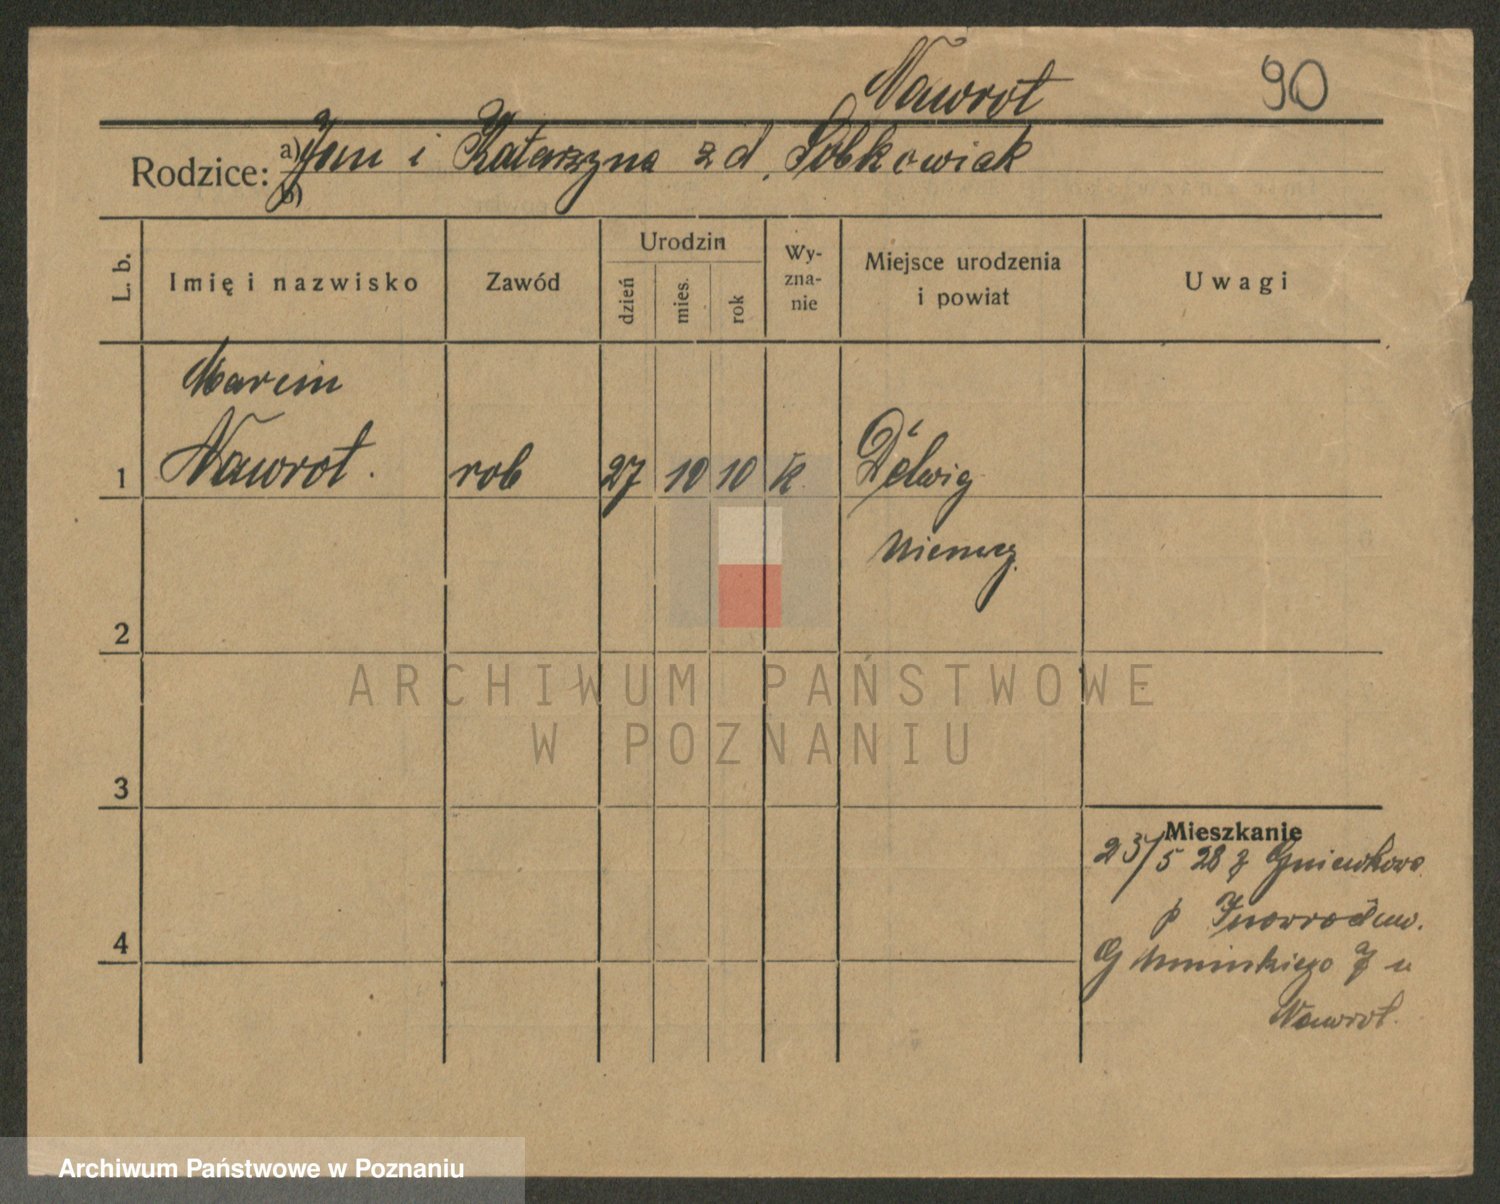 Nawrot
90
Rodzice: a) Jan i Katarzyna z d. Sobkowiak
b)
L. b.
Imię i nazwisko
Zawód
Urodzin
dzień
mies.
rok
Wy-
zna-
nie
Miejsce urodzenia
i powiat
Uwagi
Marcin
1
Nawrot.
rob
27
10
10
k
Niemcy.
2
ARCHIWUM PAŃSTWOWE
W POZNANIU
3
Mieszkanie
23/5 28 z Gniewkowo
p Inowrocław.
4
7 u
Nawrot.
Archiwum Państwowe w Poznaniu